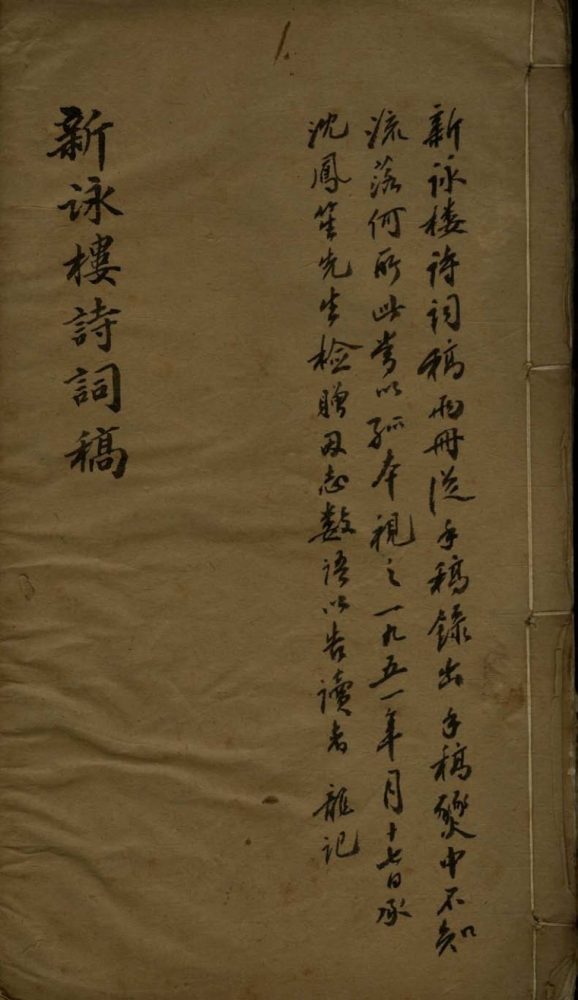 新詠樓詩詞稿兩冊從手稿錄出手稿燹中不知
流落何所此當以孤本視之一九五一年月十七日承
沈鳳笙先生檢贈因志數語以告讀者 龍記
新詠樓詩詞稿
1.